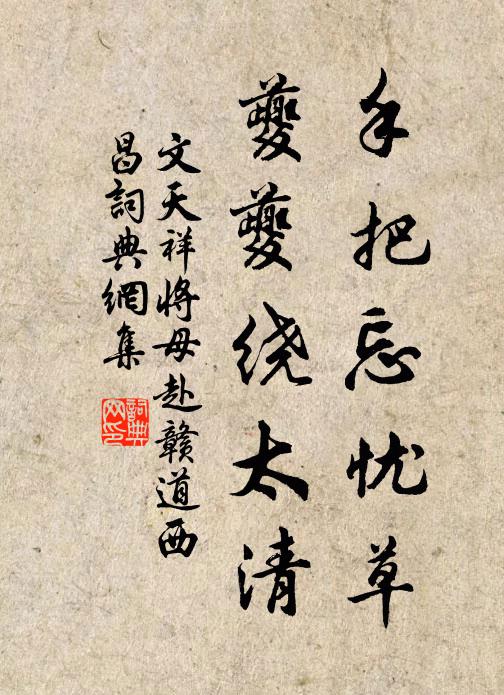 手把忘忧草
夔夔绕太清
文天祥将母赴赣道西
昌詞典網集
詞典
网印